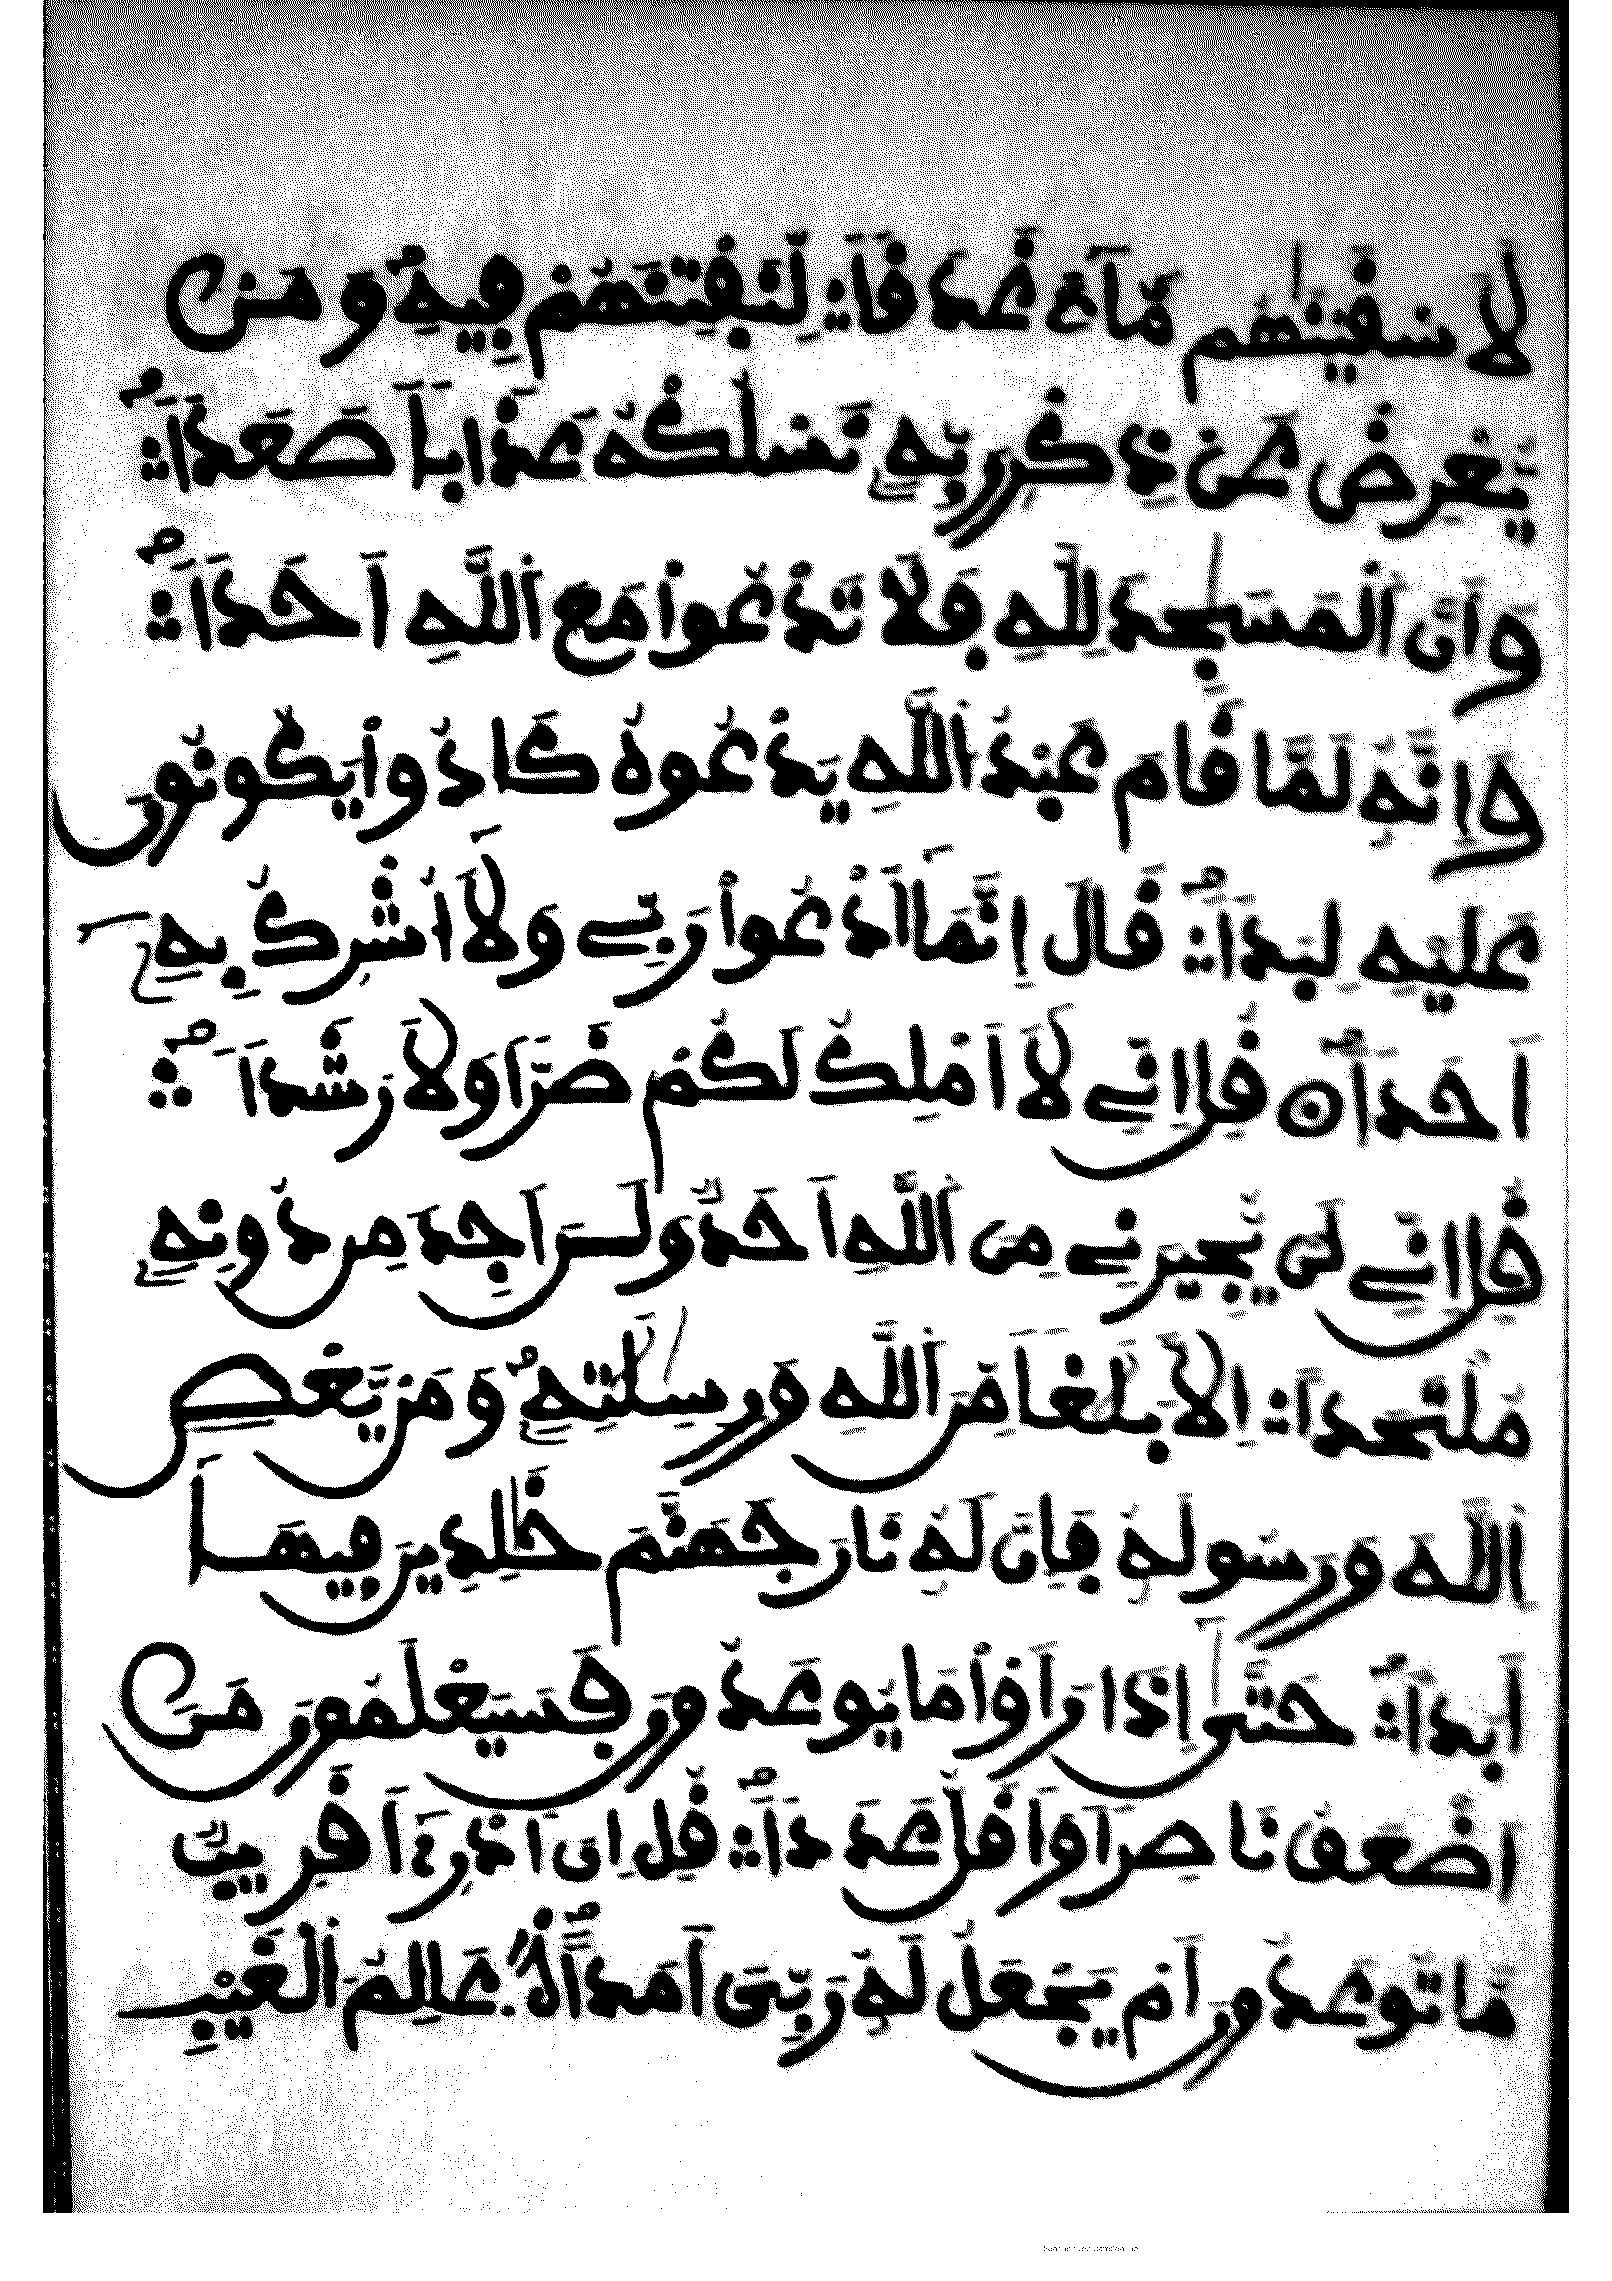 لَأَسْقَيْنَٰهُم مَّآءً غَدَقاً لِّنَفْتِنَهُمْ فِيهِۖ وَمَنْ
يُّعْرِضْ عَن ذِكْرِ رَبِّهِۦ نَسْلُكْهُ عَذَاباً صَعَداًۖ
وَأَنَّ ٱلْمَسَٰجِدَ لِلهِ فَلَا تَدْعُواْ مَعَ ٱللَّهِ أَحَداًۖ
وَإِنَّهُۥ لَمَّا قَامَ عَبْدُ ٱللَّهِ يَدْعُوهُ كَادُواْ يَكُونُونَ
عَلَيْهِ لِبَداًۖ قَالَ إِنَّمَآ أَدْعُواْ رَبِّے وَلَآ أُشْرِكُ بِهِۦٓ
أَحَداًۖ قُلِ اِنِّے لَآ أَمْلِكُ لَكُمْ ضَرّاً وَلَا رَشَداًۖ
قُلِ اِنِّے لَنْ يُّجِيرَنِے مِنَ ٱللَّهِ أَحَدٌ وَلَنَ اَجِدَ مِن دُونِهِۦ
مُلْتَحَداً اِلَّا بَلَٰغاً مِّنَ ٱللَّهِ وَرِسَٰلَٰتِهِۦۖ وَمَنْ يَّعْصِ
ٱللَّهَ وَرَسُولَهُۥ فَإِنَّ لَهُۥ نَارَ جَهَنَّمَ خَٰلِدِينَ فِيهَآ
أَبَداًۖ حَتَّىٰٓ إِذَا رَأَوْاْ مَا يُوعَدُونَ فَسَيَعْلَمُونَ مَنَ
اَضْعَفُ نَاصِراً وَأَقَلُّ عَدَداًۖ قُلِ اِنَ اَدْرِےٓ أَقَرِيبٌ
مَّا تُوعَدُونَ أَمْ يَجْعَلُ لَهُۥ رَبِّىَ أَمَداًۖ عَٰلِمُ ٱلْغَيْبِ